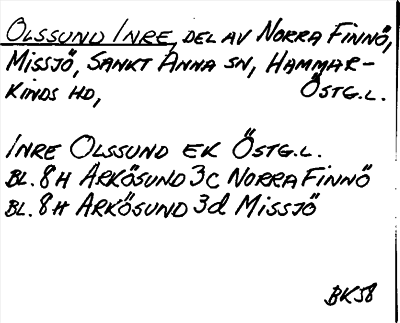 OLSSUND INRE, DEL AV NORRA FINNÖ,
MISSJÖ, SANKT ANNA SN, HAMMAR-
KINDS HD, ÖSTG.L.
INRE OLSSUND EK ÖSTG.L.
BL. 8H ARKÖSUND 3c NORRA FINNÖ
BL. 8H ARKÖSUND 3d MISSJÖ
BK58